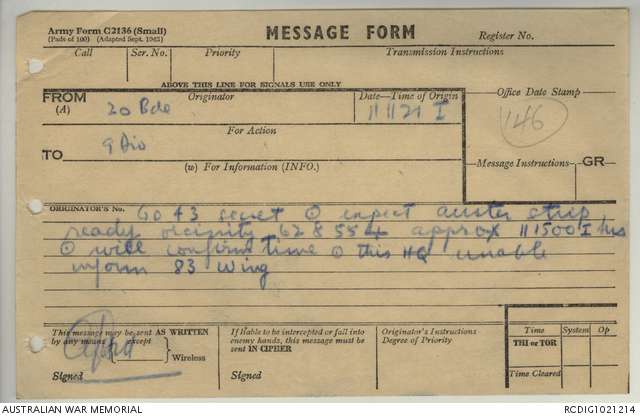 Army Form C2136 (Small)
(Pads of 100) (Adapted Sept. 1942)
MESSAGE FORM
Register No.
Call Ser. No. Priority Transmission Instructions
ABOVE THIS LINE FOR SIGNALS USE ONLY
FROM Originator Date—Time of Origin Office Date Stamp
(A) 20 Bde 111121 I
146
For Action
TO 9 Div
(w) For Information (INFO.) Message Instructions GR
ORIGINATOR'S No.
GO 43 secret O expect auster strip
ready vicinity 628554 approx 111500 I hrs
O will confirm time O this HQ unable
inform 83 Wing
This message may be sent AS WRITTEN
by any means except
Wireless
Signed
If liable to be intercepted or fall into
enemy hands, this message must be
sent IN CIPHER
Signed
Originator's Instructions
Degree of Priority
Time System Op
THI or TOR
Time Cleared
AUSTRALIAN WAR MEMORIAL
RCDIG1021214